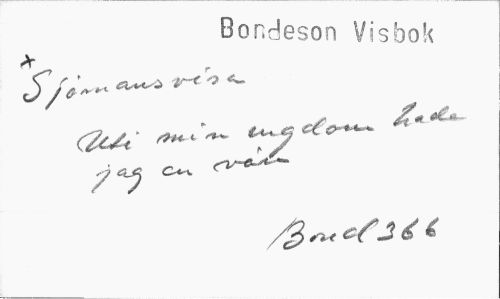 Bondeson Visbok
x Sjömansvisa
Uti min ungdom hade
jag en vän
Bond 366